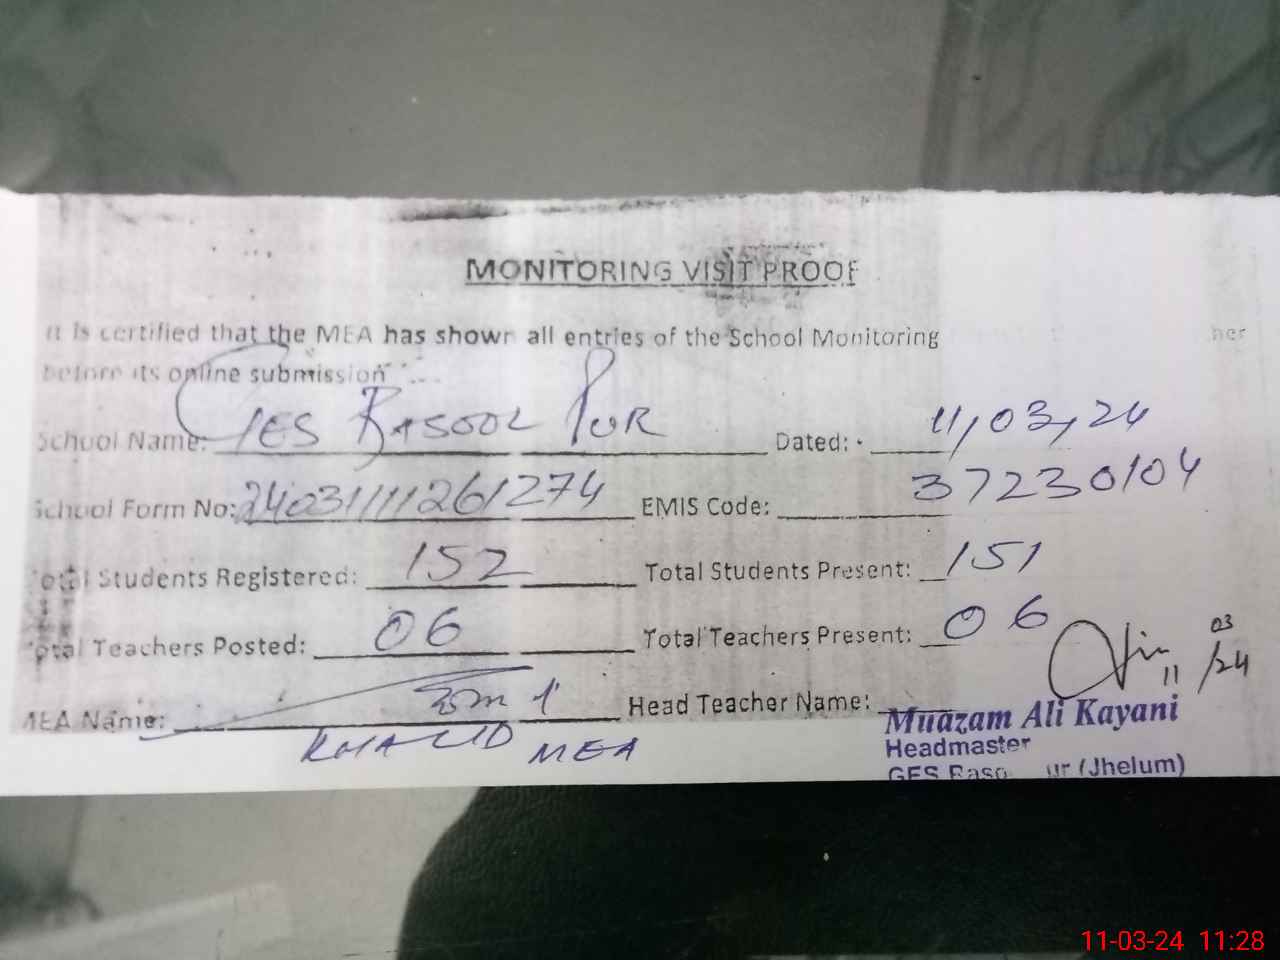 MONITORING VISIT PROOF
It is certified that the MEA has shown all entries of the School Monitoring her
before its online submission
School Name: GES RASOOL PUR Dated: 11/03/24
School Form No: 24031111261274 EMIS Code: 37230104
Total Students Registered: 152 Total Students Present: 151
Total Teachers Posted: 06 Total Teachers Present: 06
03
11 /24
MEA Name: Head Teacher Name:
KHALID MEA
Muazam Ali Kayani
Headmaster
GES Raso ur (Jhelum)
11-03-24 11:28